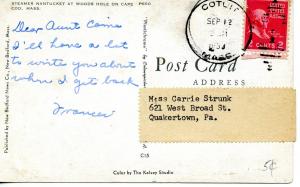 STEAMER NANTUCKET AT WOODS HOLE ON CAPE
COD, MASS.
Dear Aunt Carrie
I'll have a lot
to write you about
when I get back
Frances
COTUIT
SEP 12
MASS.
2
Post Card
ADDRESS
Miss Carrie Strunk
621 West Broad St.
Quakertown, Pa.
C15
Color by The Kelsey Studio
5¢
Published by New Bedford News Co., New Bedford, Mass.